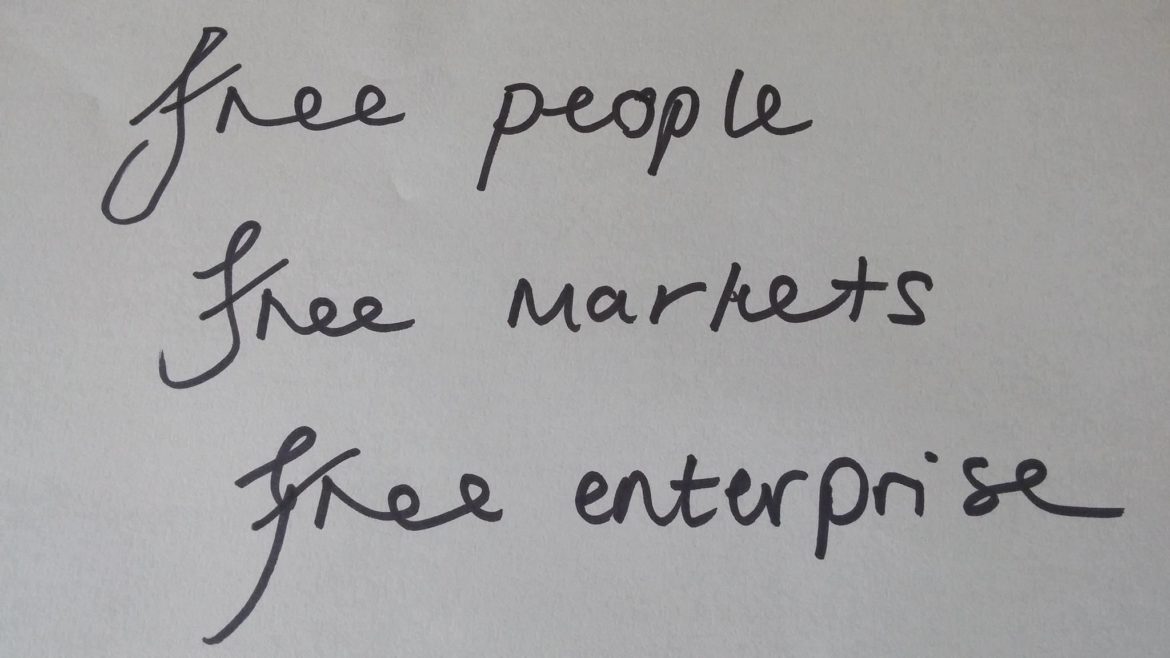 free people
free markets
free enterprise